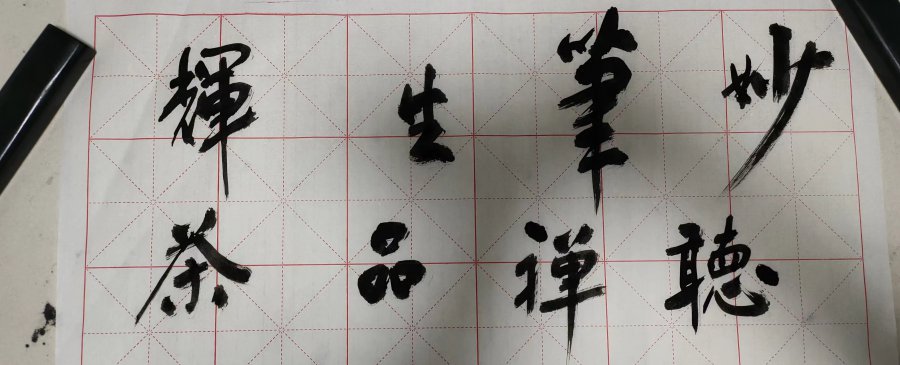 妙筆生輝
聽禅品茶